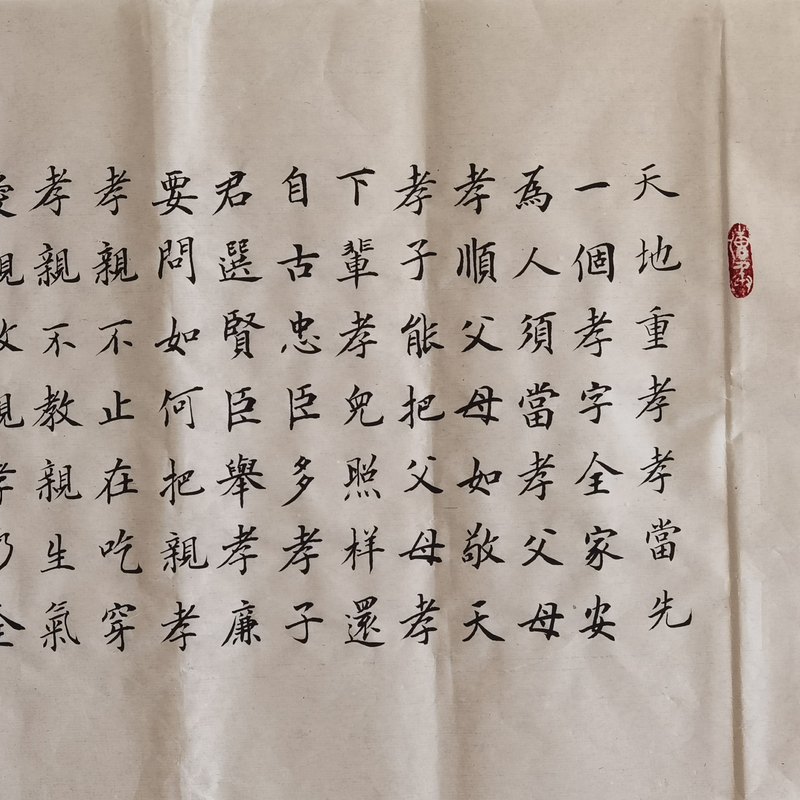 天地重孝孝當先
一個孝字全家安
為人須當孝父母
孝順父母如敬天
孝子能把父母孝
下輩孝兒照樣還
自古忠臣多孝子
君選賢臣舉孝廉
要問如何把親孝
孝親不止在吃穿
孝親不教親生氣
愛親敬親孝乃全